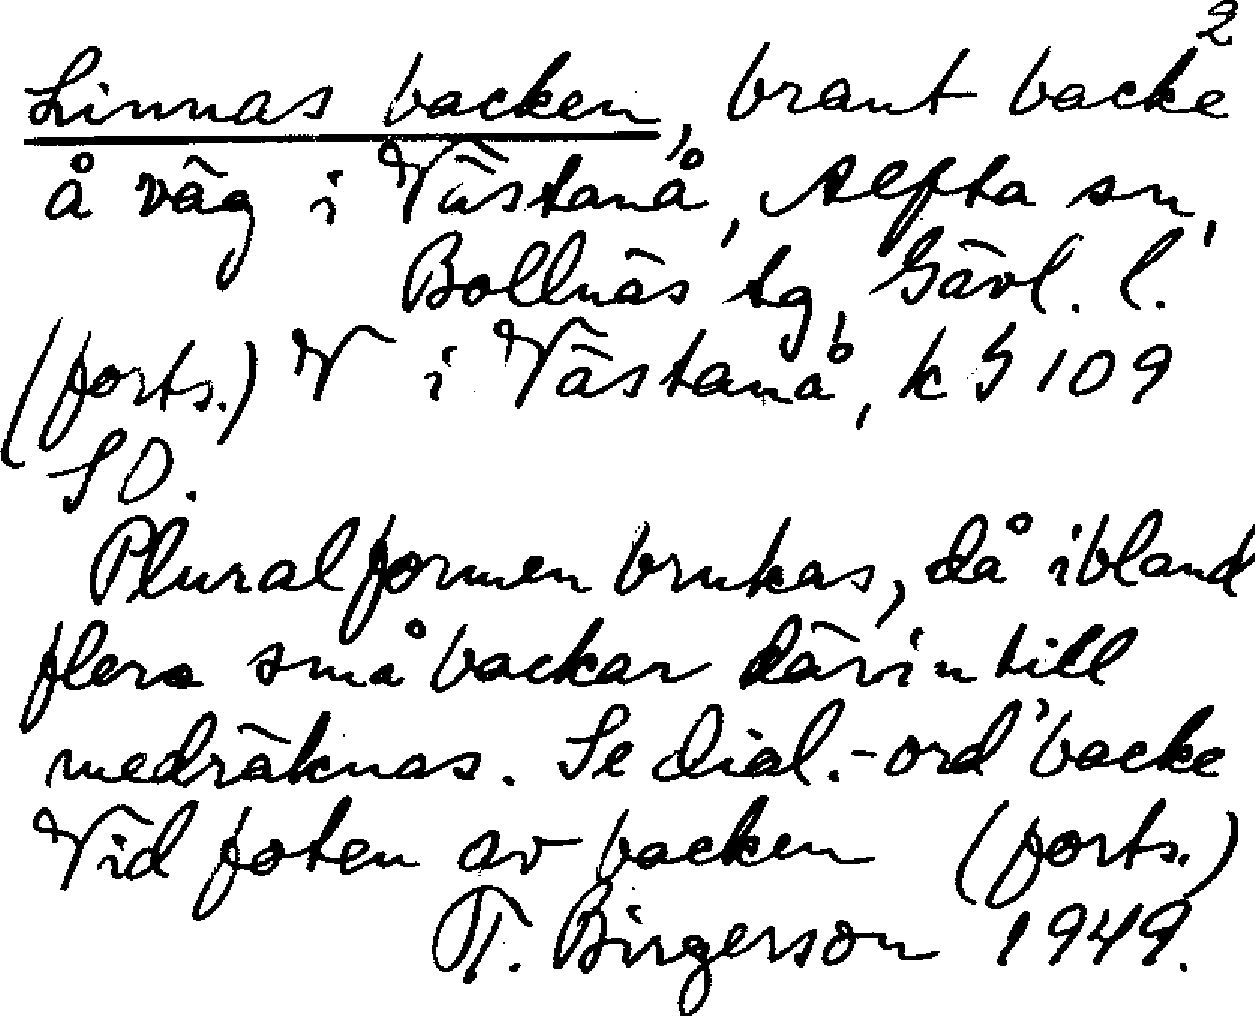 2
Linnas backen, brant backe
å väg i Västanå, Alfta sn,
Bollnäs tg, Gävl. l.
(forts.) V i Västanå, k S 109
SO.
Pluralformen brukas, då ibland
flera små backar därintill
medräknas. Se dial.-ord backe
Vid foten av backen (forts.)
T. Birgerson 1949.